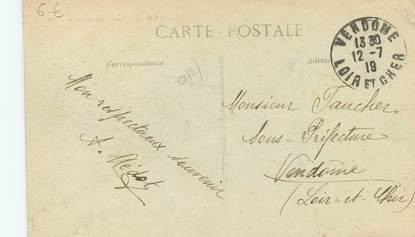 6 €
CARTE POSTALE
Correspondance
Adresse
VENDOME
13 30
12 -7
19
LOIR ET CHER
(90)
Mon respectueux souvenir
A. Médot
Monsieur Faucher
Sous-Préfecture
Vendome
(Loir-et-Cher)